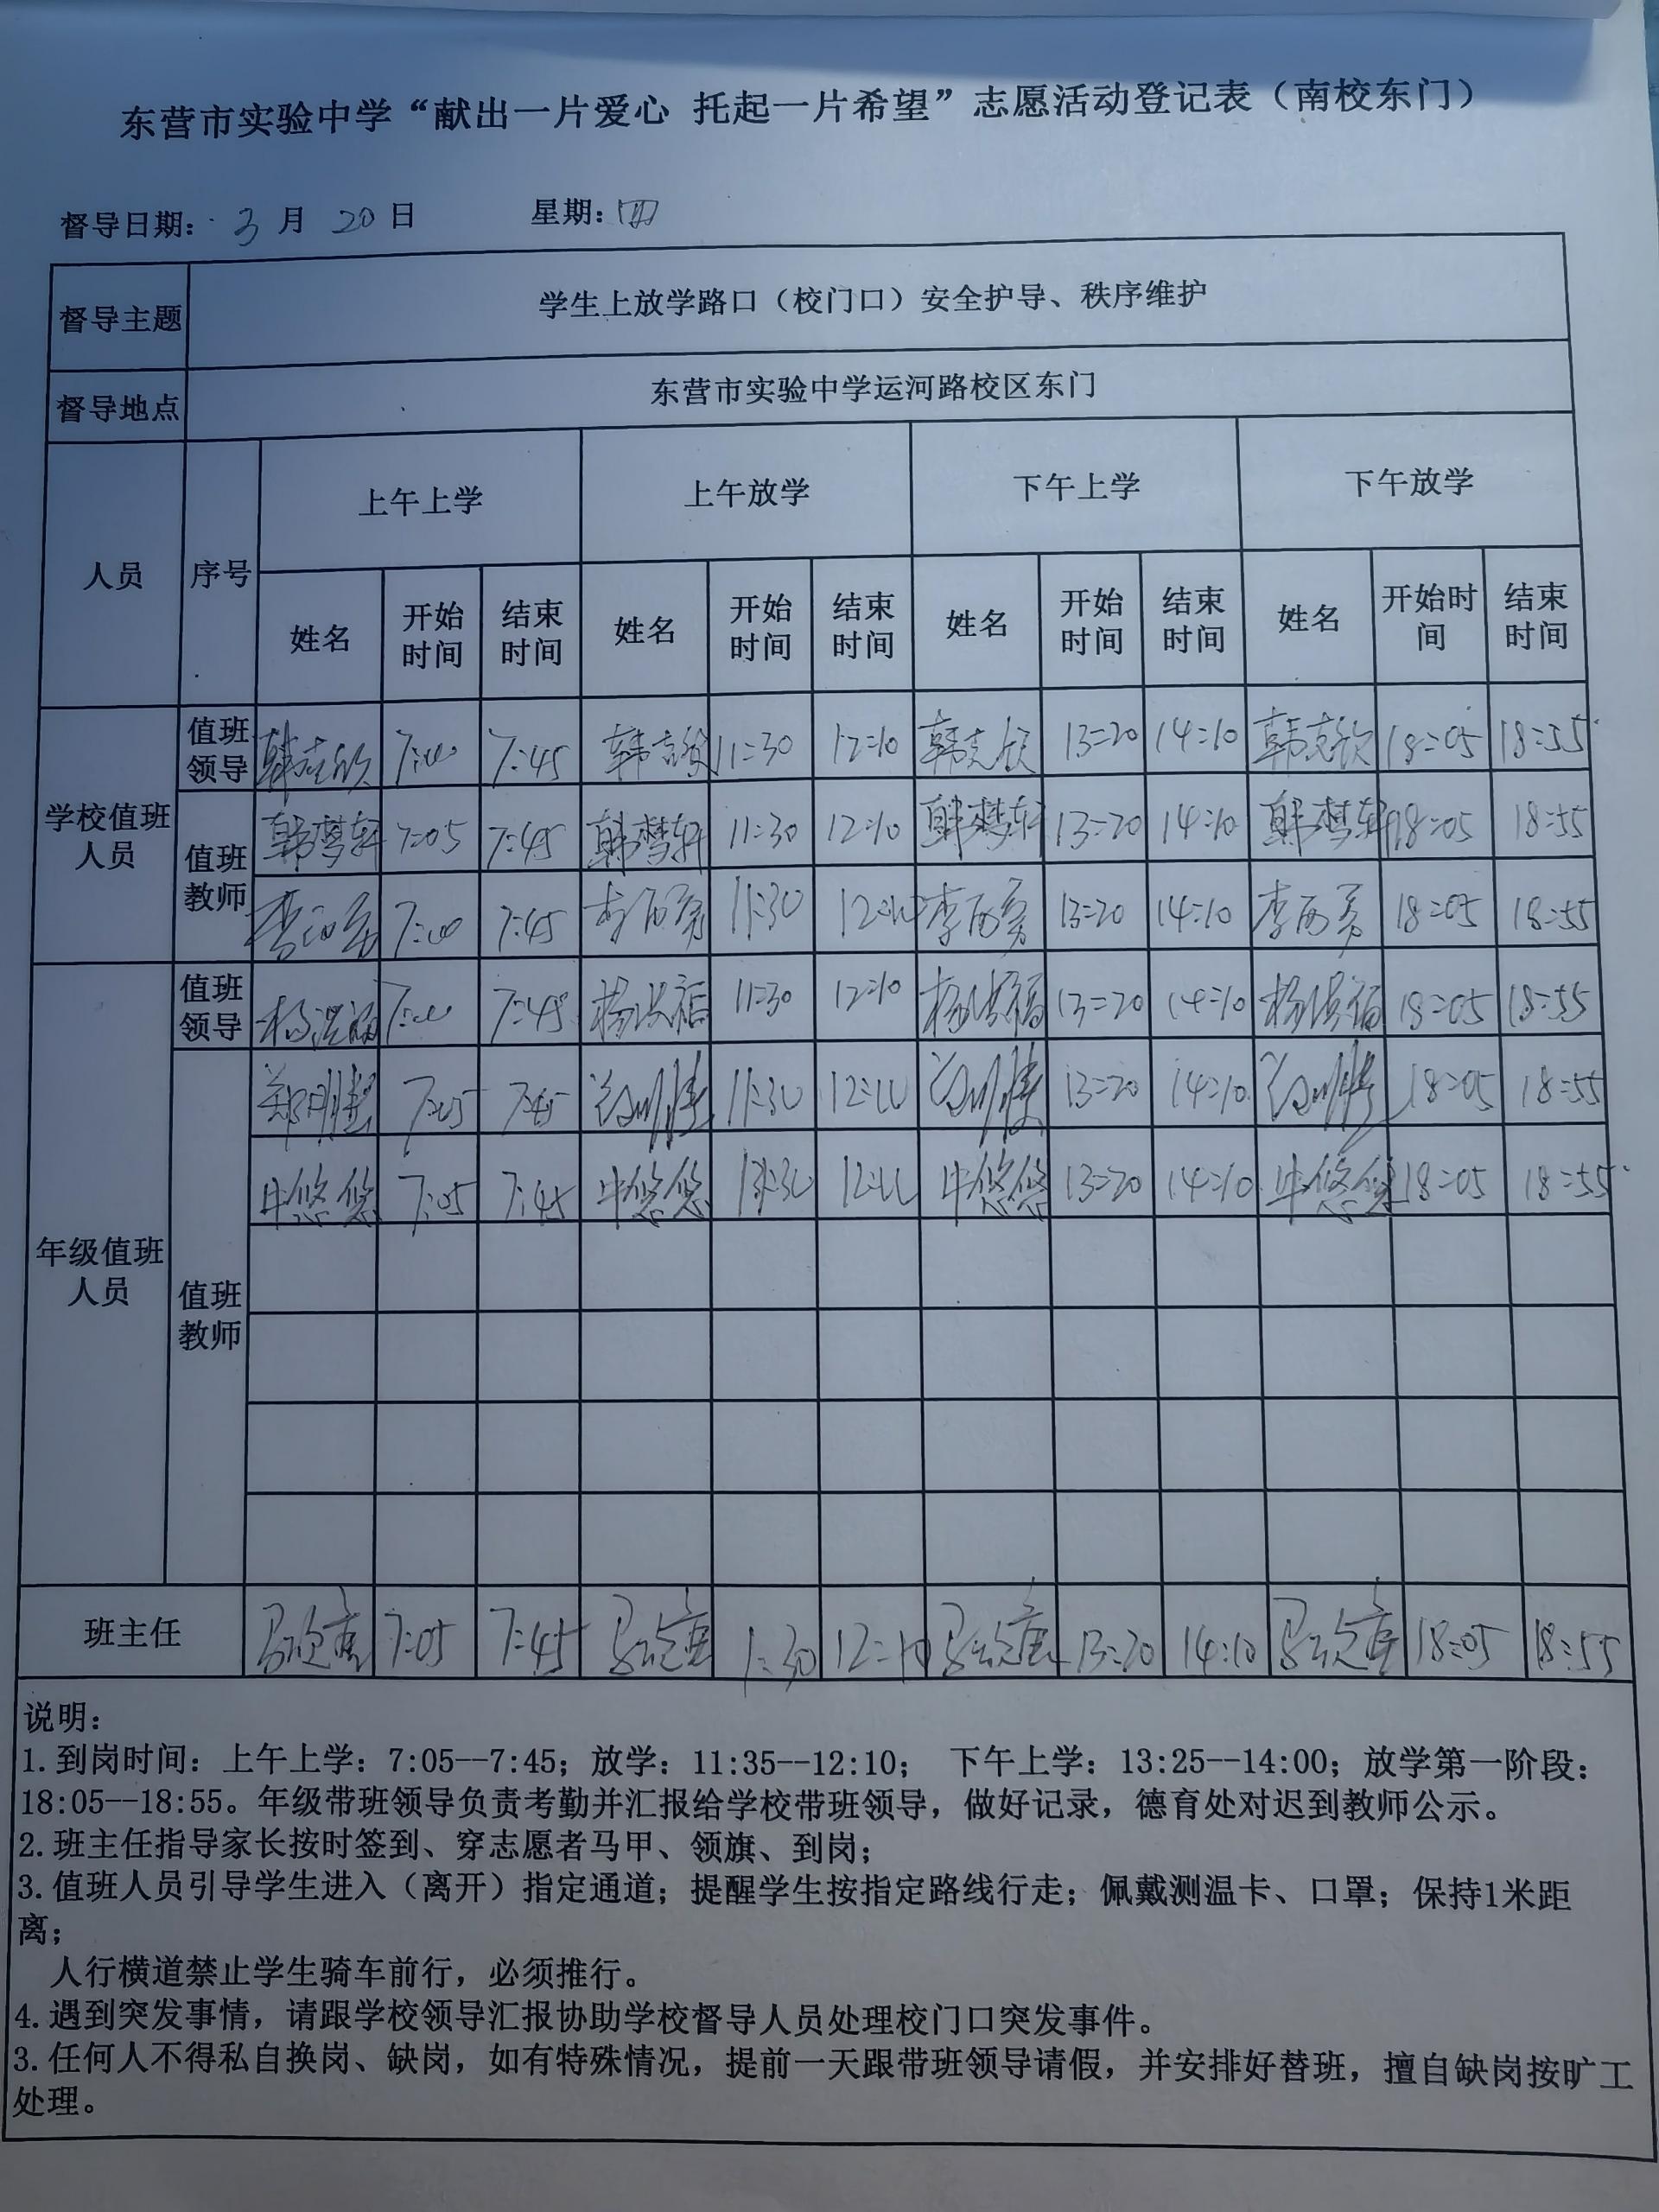 东营市实验中学“献出一片爱心 托起一片希望”志愿活动登记表（南校东门）
督导日期： 3 月 20 日 星期：四
督导主题 学生上放学路口（校门口）安全护导、秩序维护
督导地点 东营市实验中学运河路校区东门
人员 序号 上午上学 上午放学 下午上学 下午放学
姓名 开始时间 结束时间 姓名 开始时间 结束时间 姓名 开始时间 结束时间 姓名 开始时间 结束时间
学校值班人员 值班领导 韩克欣 7:00 7:45 韩克欣 11:30 12:10 韩克欣 13:20 14:10 韩克欣 18:05 18:55
值班教师 韩梦轩 7:05 7:45 韩梦轩 11:30 12:10 韩梦轩 13:20 14:10 韩梦轩 18:05 18:55
7:00 7:45 11:30 12:10 13:20 14:10 18:05 18:55
年级值班人员 值班领导 杨洪福 7:00 7:45 杨洪福 11:30 12:10 杨洪福 13:20 14:10 杨洪福 18:05 18:55
值班教师 7:05 7:45 11:30 12:10 13:20 14:10 18:05 18:55
牛悠悠 7:05 7:45 牛悠悠 牛悠悠 13:20 14:10 牛悠悠 18:05 18:55
班主任 7:05 7:45 12:10 13:20 14:10 18:05 18:55
说明：
1.到岗时间：上午上学：7:05--7:45；放学：11:35--12:10； 下午上学：13:25--14:00；放学第一阶段：
18:05--18:55。年级带班领导负责考勤并汇报给学校带班领导，做好记录，德育处对迟到教师公示。
2.班主任指导家长按时签到、穿志愿者马甲、领旗、到岗；
3.值班人员引导学生进入（离开）指定通道；提醒学生按指定路线行走；佩戴测温卡、口罩；保持1米距
离；
人行横道禁止学生骑车前行，必须推行。
4.遇到突发事情，请跟学校领导汇报协助学校督导人员处理校门口突发事件。
3.任何人不得私自换岗、缺岗，如有特殊情况，提前一天跟带班领导请假，并安排好替班，擅自缺岗按旷工
处理。